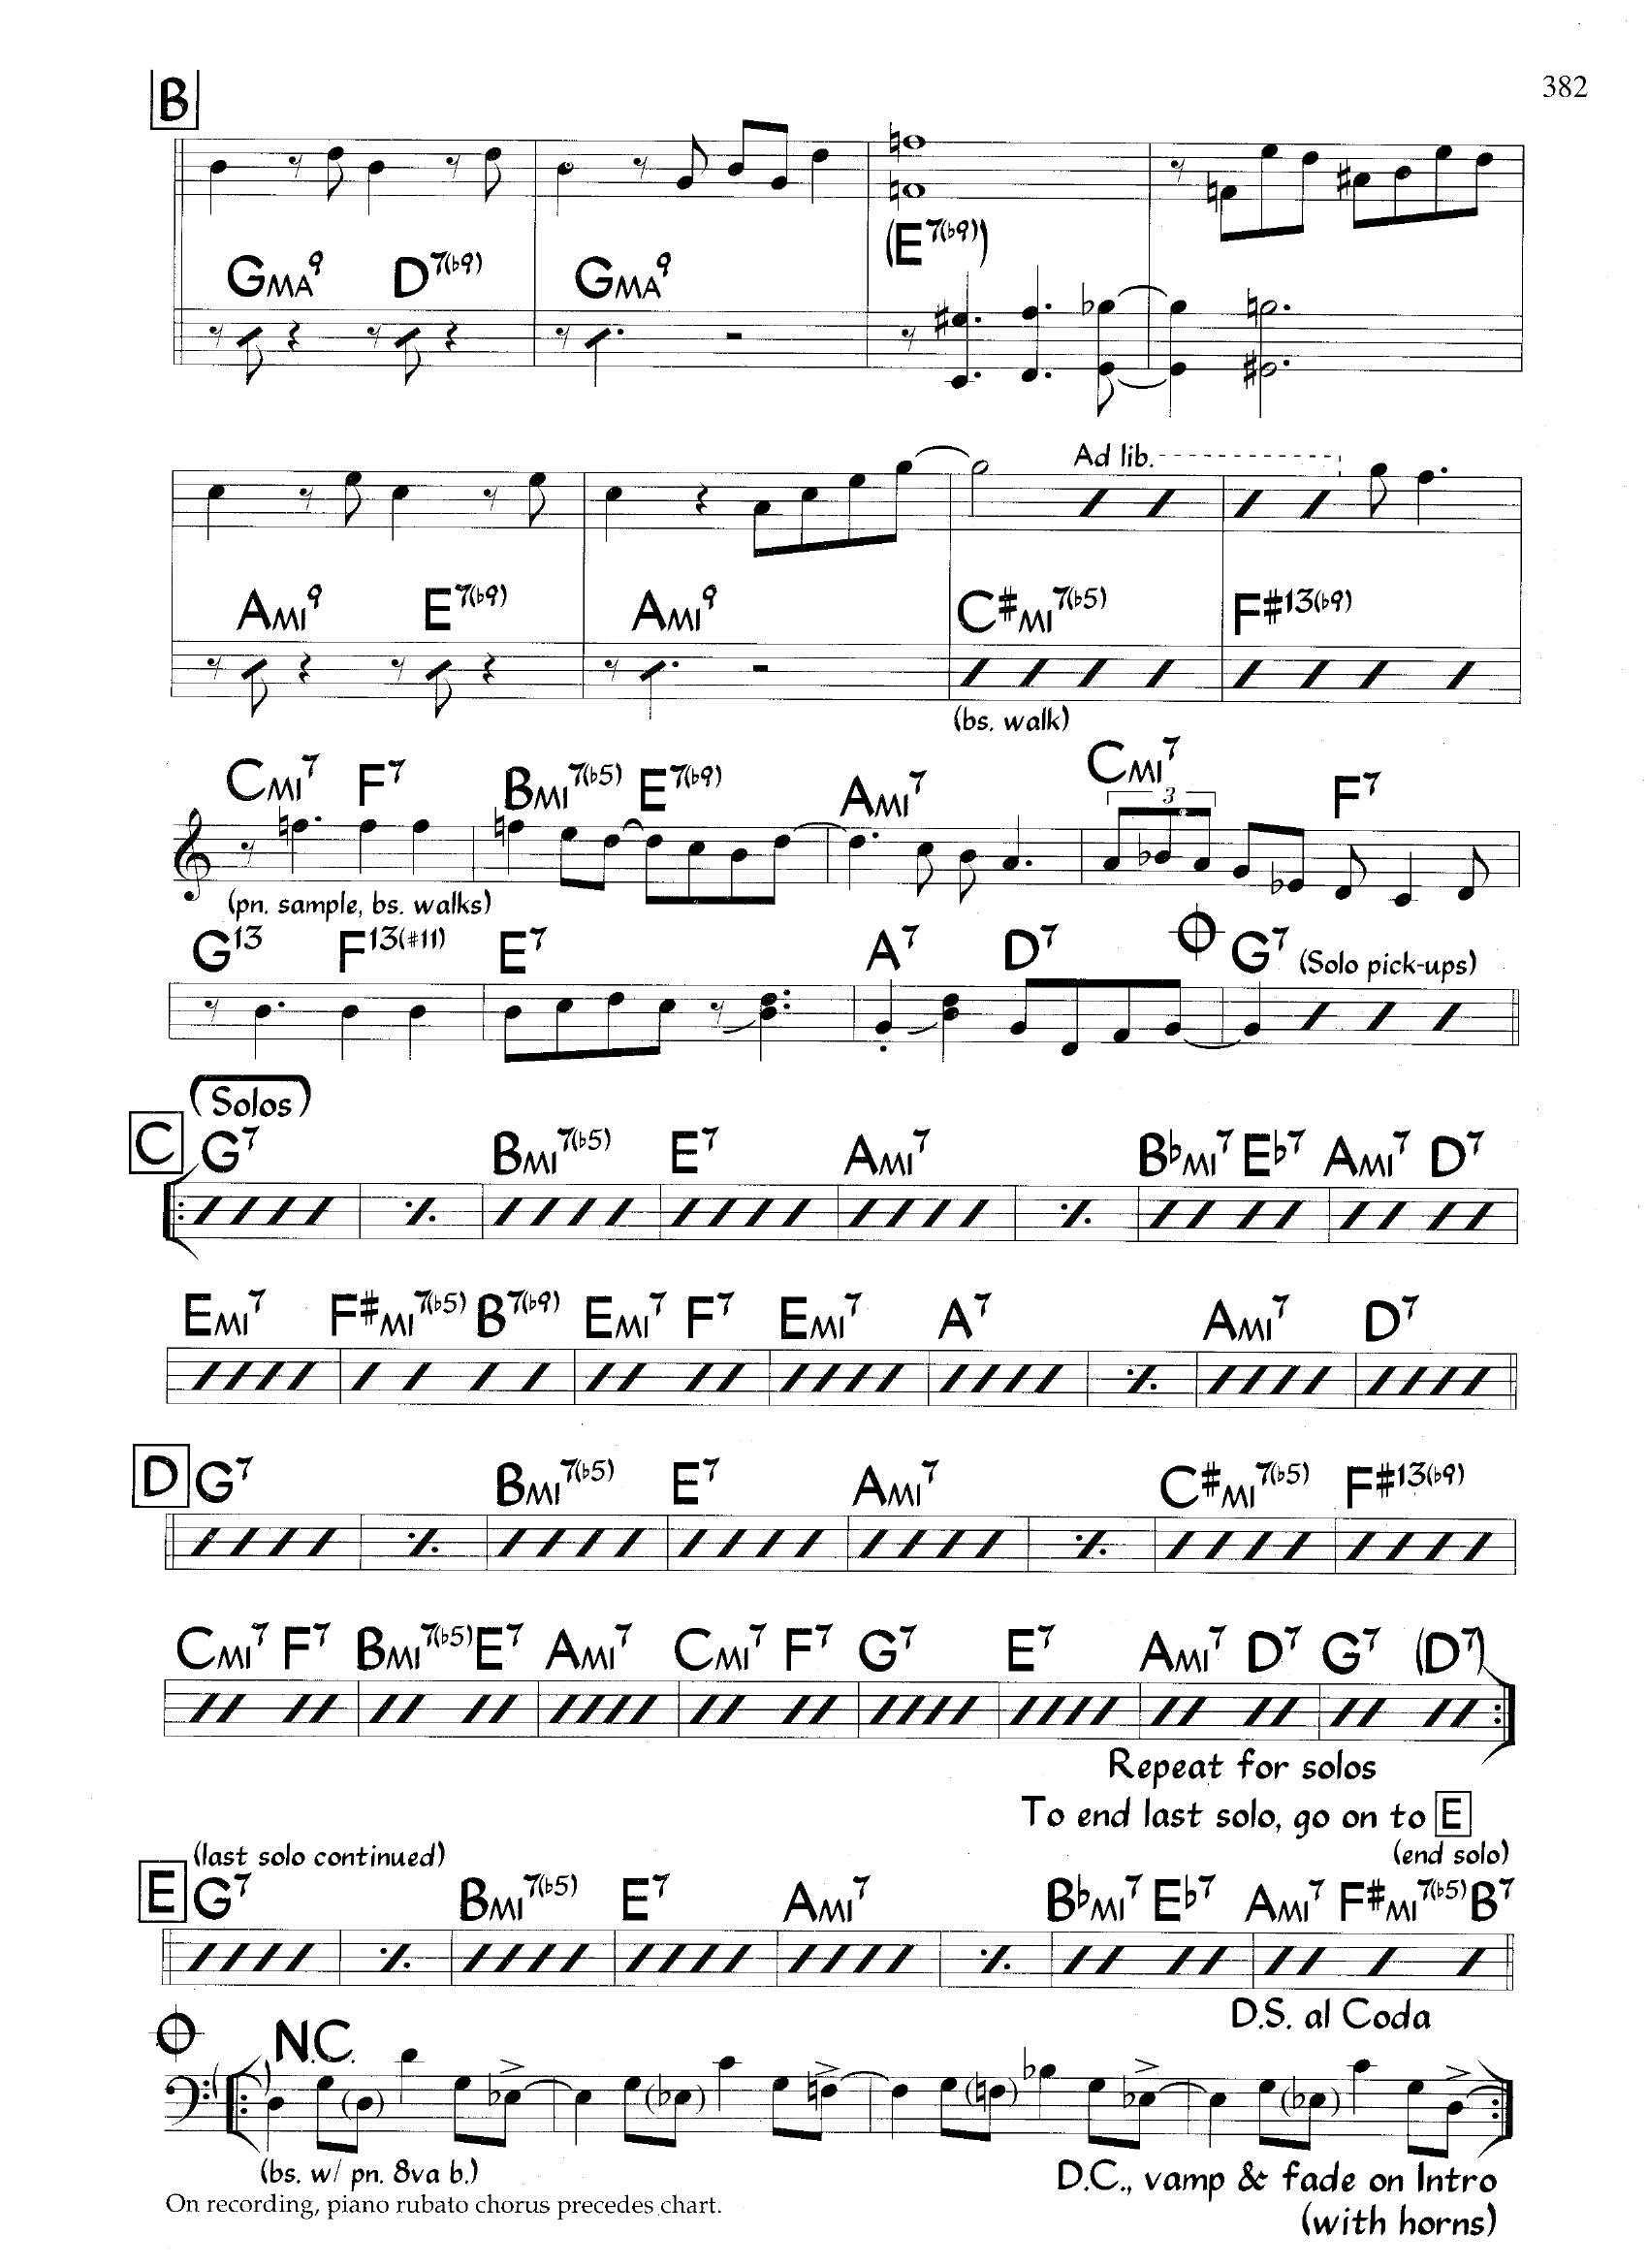 382
B
GMA9 D7(b9) GMA9 (E7(b9))
Ad lib.
AMI9 E7(b9) AMI9 C#MI7(b5) F#13(b9)
(bs. walk)
CMI7 F7 BMI7(b5) E7(b9) AMI7 CMI7 F7
3
(pn. sample, bs. walks)
G13 F13(#11) E7 A7 D7 G7 (Solo pick-ups)
(Solos)
C G7 BMI7(b5) E7 AMI7 BbMI7 Eb7 AMI7 D7
EMI7 F#MI7(b5) B7(b9) EMI7 F7 EMI7 A7 AMI7 D7
D G7 BMI7(b5) E7 AMI7 C#MI7(b5) F#13(b9)
CMI7 F7 BMI7(b5) E7 AMI7 CMI7 F7 G7 E7 AMI7 D7 G7 (D7)
Repeat for solos
To end last solo, go on to E
(last solo continued) (end solo)
E G7 BMI7(b5) E7 AMI7 BbMI7 Eb7 AMI7 F#MI7(b5) B7
D.S. al Coda
N.C.
(bs. w/ pn. 8va b.) D.C., vamp & fade on Intro
On recording, piano rubato chorus precedes chart.
(with horns)